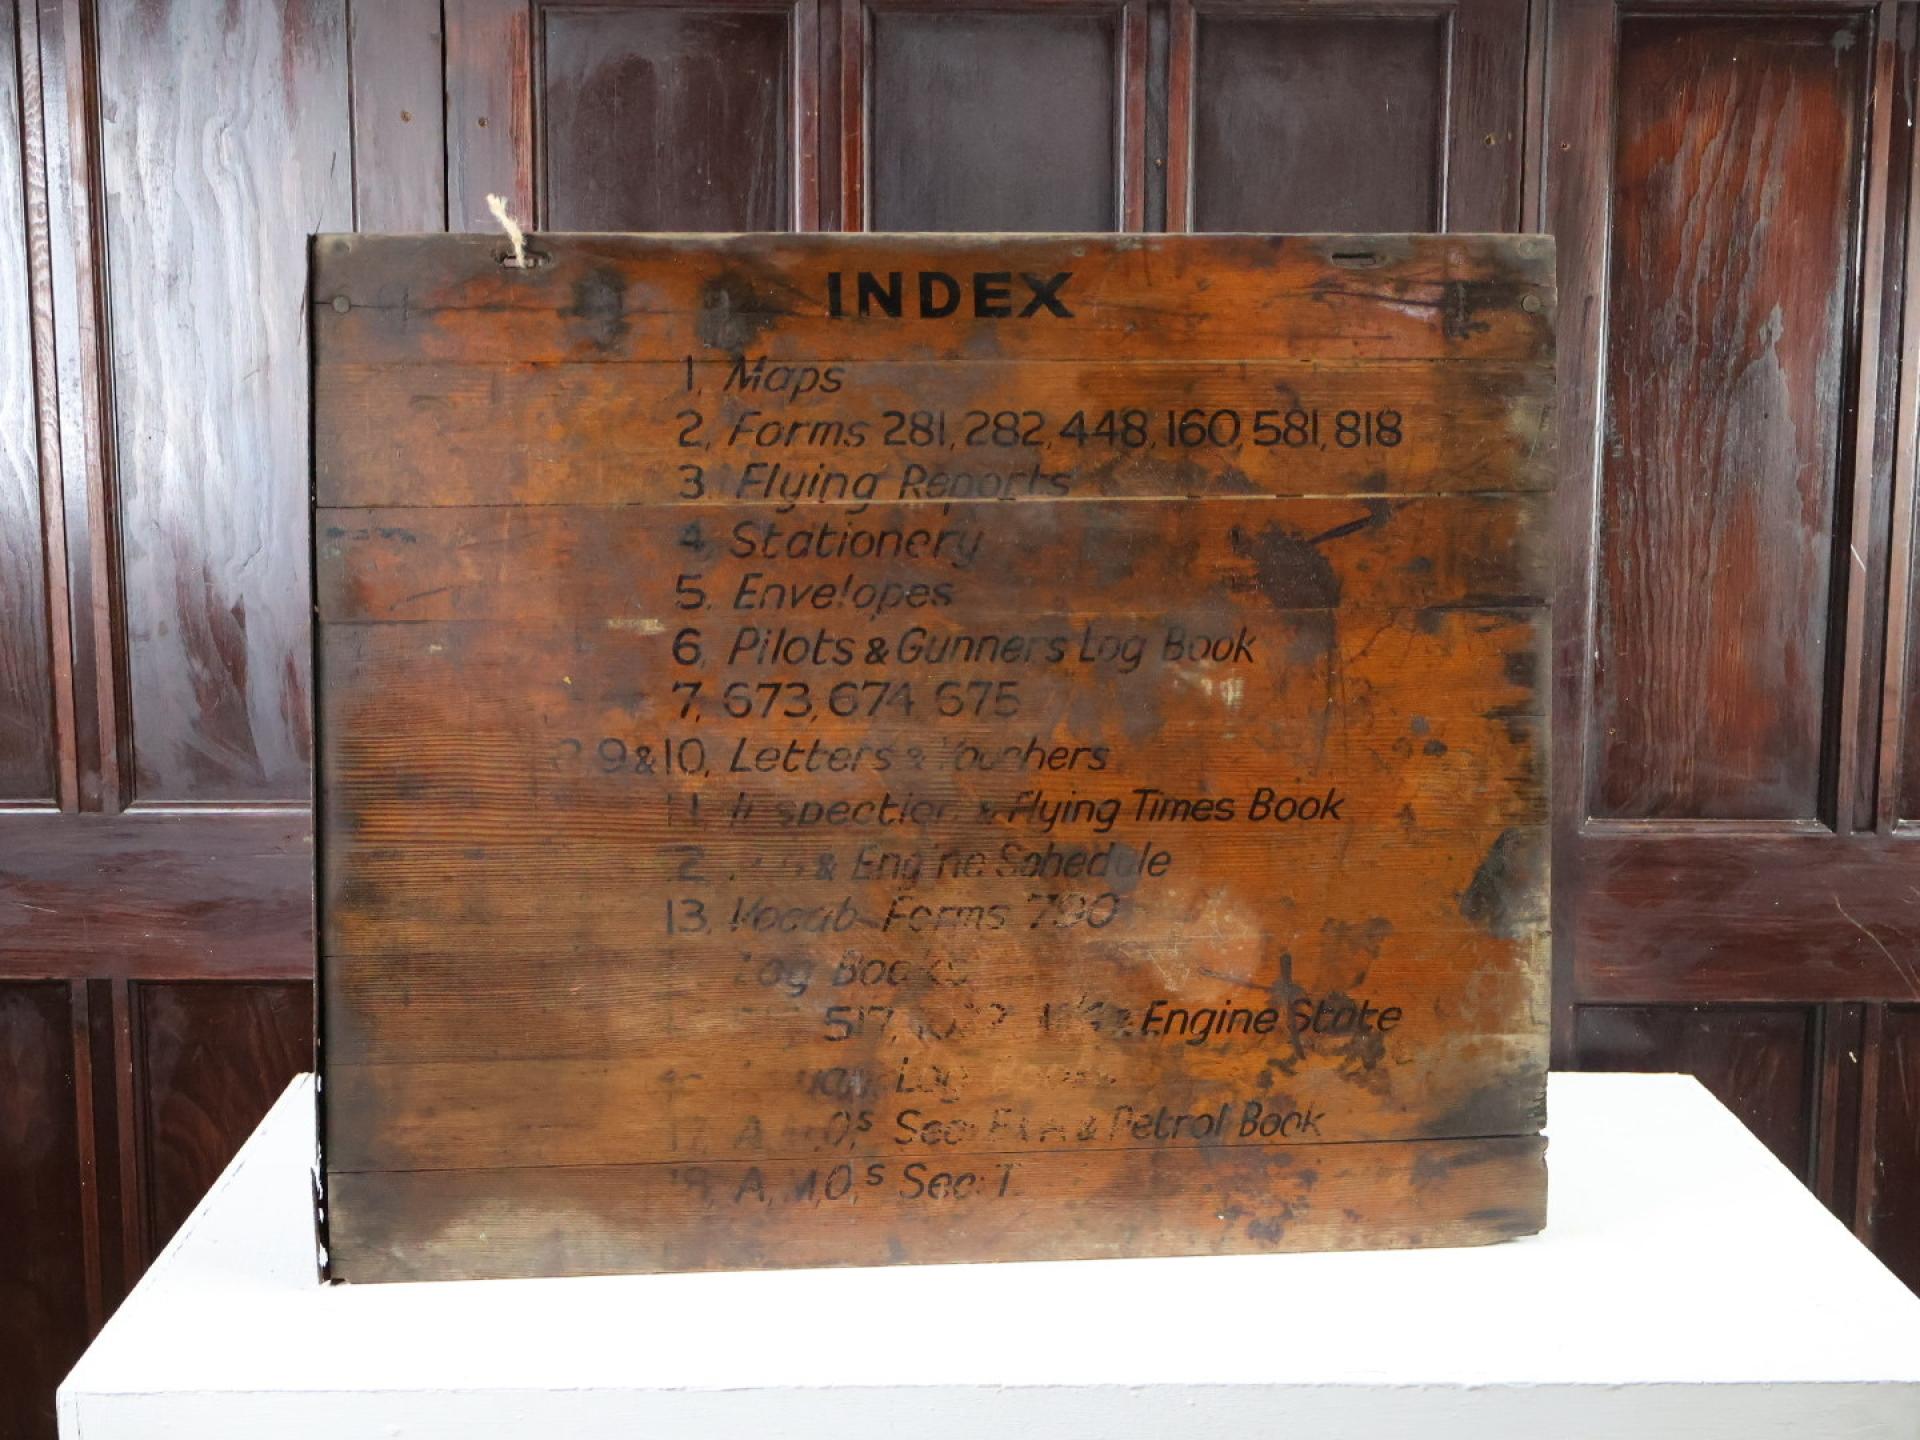 INDEX
1, Maps
2, Forms 281, 282, 448, 160, 581, 818
3 Flying Reports
4, Stationery
5, Envelopes
6, Pilots & Gunners Log Book
7, 673, 674 675
9 & 10, Letters & Vouchers
11, Inspection & Flying Times Book
& Engine Schedule
13, Vocab Forms 790
Log Books
517, Engine State
Log
17, A.M.O,s Sec: & Petrol Book
18, A.M,O,s Sec: T